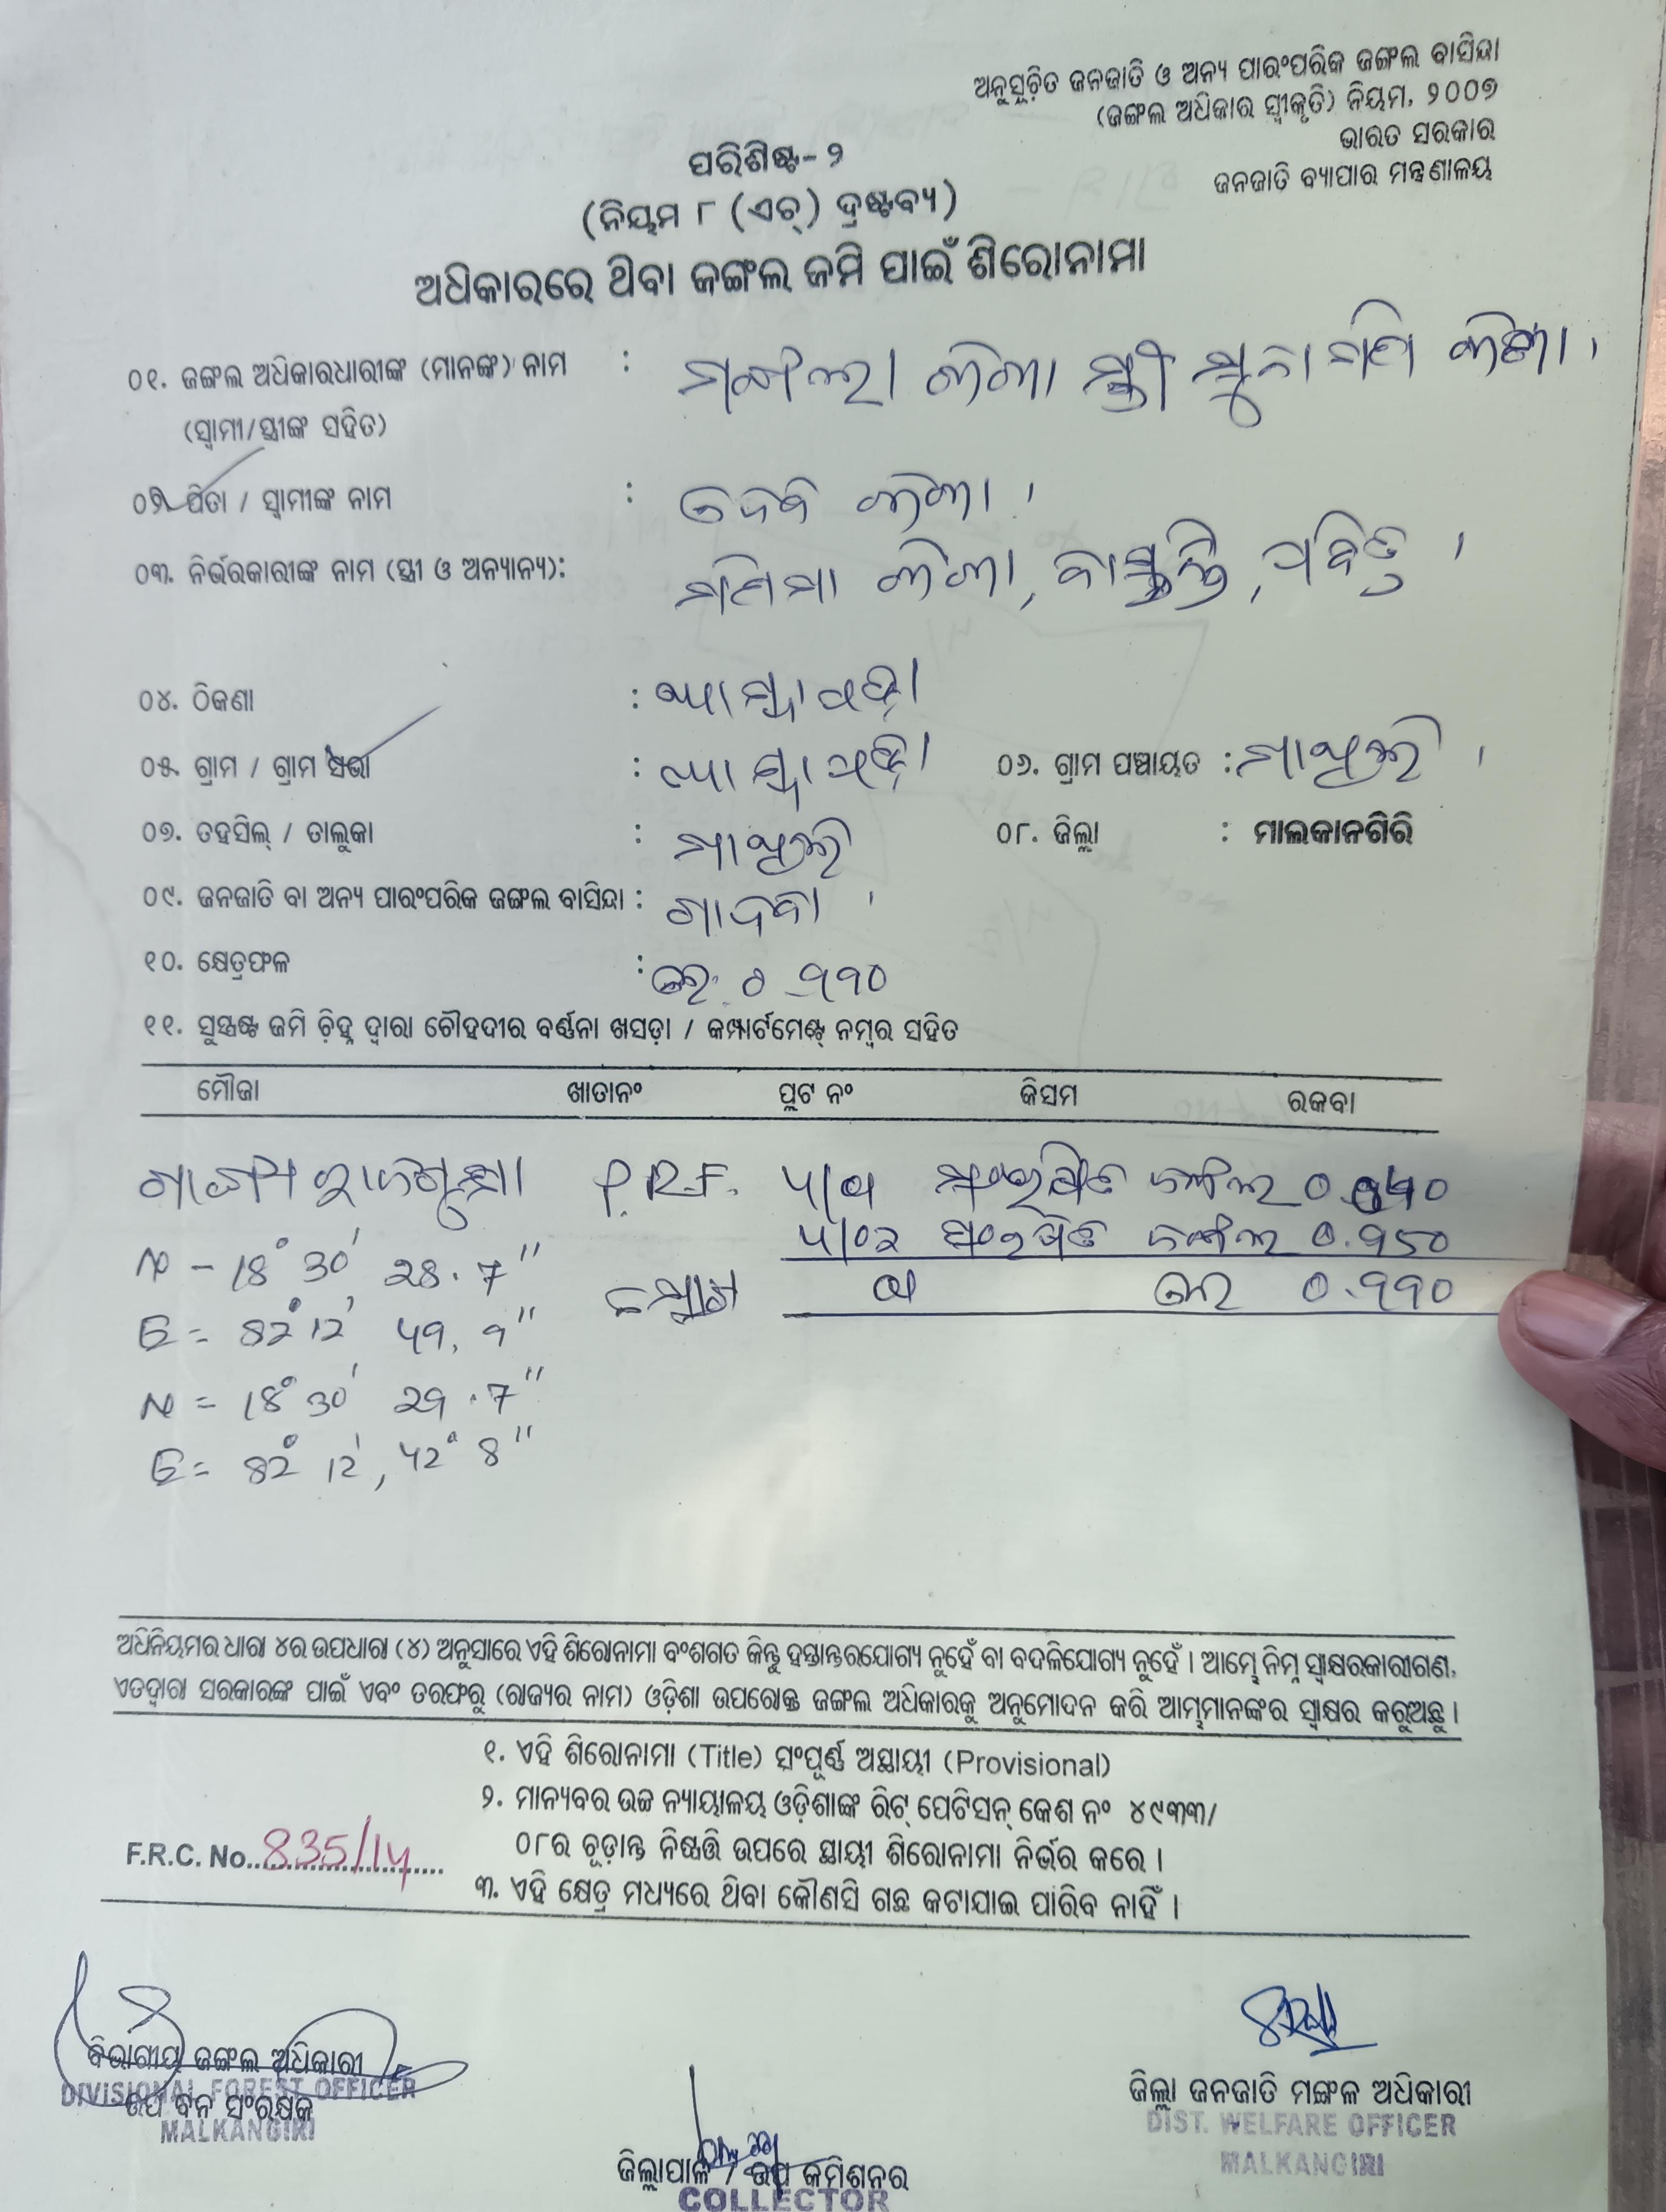 ଅନୁସୂଚିତ ଜନଜାତି ଓ ଅନ୍ୟ ପାରଂପରିକ ଜଙ୍ଗଲ ବାସିନ୍ଦା
(ଜଙ୍ଗଲ ଅଧିକାର ସ୍ୱୀକୃତି) ନିୟମ, ୨୦୦୭
ଭାରତ ସରକାର
ଜନଜାତି ବ୍ୟାପାର ମନ୍ତ୍ରଣାଳୟ
ପରିଶିଷ୍ଟ-୨
(ନିୟମ ୮ (ଏଚ୍) ଦ୍ରଷ୍ଟବ୍ୟ)
ଅଧିକାରରେ ଥିବା ଜଙ୍ଗଲ ଜମି ପାଇଁ ଶିରୋନାମା
୦୧. ଜଙ୍ଗଲ ଅଧିକାରଧାରୀଙ୍କ (ମାନଙ୍କ) ନାମ :
(ସ୍ୱାମୀ/ସ୍ତ୍ରୀଙ୍କ ସହିତ)
୦୨. ପିତା / ସ୍ୱାମୀଙ୍କ ନାମ :
୦୩. ନିର୍ଭରକାରୀଙ୍କ ନାମ (ସ୍ତ୍ରୀ ଓ ଅନ୍ୟାନ୍ୟ):
୦୪. ଠିକଣା :
୦୫. ଗ୍ରାମ / ଗ୍ରାମ ସଭା : ୦୬. ଗ୍ରାମ ପଞ୍ଚାୟତ : ମାଥିଲି
୦୭. ତହସିଲ୍ / ତାଲୁକା : ମାଥିଲି ୦୮. ଜିଲ୍ଲା : ମାଲକାନଗିରି
୦୯. ଜନଜାତି ବା ଅନ୍ୟ ପାରଂପରିକ ଜଙ୍ଗଲ ବାସିନ୍ଦା : ଗାଦବା ।
୧୦. କ୍ଷେତ୍ରଫଳ :
୧୧. ସୁସ୍ପଷ୍ଟ ଜମି ଚିହ୍ନ ଦ୍ୱାରା ଚୌହଦୀର ବର୍ଣ୍ଣନା ଖସଡ଼ା / କମ୍ପାର୍ଟମେଣ୍ଟ୍ ନମ୍ବର ସହିତ
ମୌଜା ଖାତାନଂ ପ୍ଲଟ ନଂ କିସମ ରକବା
P.R.F. ସଂରକ୍ଷିତ ଜଙ୍ଗଲ
ସଂରକ୍ଷିତ ଜଙ୍ଗଲ
N - 18° 30' 28.7"
E = 82° 12'
N = 18° 30' 29.7"
E = 82° 12', 42° 8"
ଅଧିନିୟମର ଧାରା ୪ର ଉପଧାରା (୪) ଅନୁସାରେ ଏହି ଶିରୋନାମା ବଂଶଗତ କିନ୍ତୁ ହସ୍ତାନ୍ତରଯୋଗ୍ୟ ନୁହେଁ ବା ବଦଳିଯୋଗ୍ୟ ନୁହେଁ । ଆମ୍ଭେ ନିମ୍ନ ସ୍ୱାକ୍ଷରକାରୀଗଣ,
ଏତଦ୍ୱାରା ସରକାରଙ୍କ ପାଇଁ ଏବଂ ତରଫରୁ (ରାଜ୍ୟର ନାମ) ଓଡ଼ିଶା ଉପରୋକ୍ତ ଜଙ୍ଗଲ ଅଧିକାରକୁ ଅନୁମୋଦନ କରି ଆମ୍ଭମାନଙ୍କର ସ୍ୱାକ୍ଷର କରୁଅଛୁ ।
୧. ଏହି ଶିରୋନାମା (Title) ସଂପୂର୍ଣ୍ଣ ଅସ୍ଥାୟୀ (Provisional)
୨. ମାନ୍ୟବର ଉଚ୍ଚ ନ୍ୟାୟାଳୟ ଓଡ଼ିଶାଙ୍କ ରିଟ୍ ପେଟିସନ୍ କେଶ ନଂ ୪୯୩୩/
୦୮ର ଚୂଡ଼ାନ୍ତ ନିଷ୍ପତ୍ତି ଉପରେ ସ୍ଥାୟୀ ଶିରୋନାମା ନିର୍ଭର କରେ ।
F.R.C. No. 835/14
୩. ଏହି କ୍ଷେତ୍ର ମଧ୍ୟରେ ଥିବା କୌଣସି ଗଛ କଟାଯାଇ ପାରିବ ନାହିଁ ।
ବିଭାଗୀୟ ଜଙ୍ଗଲ ଅଧିକାରୀ
DIVISIONAL FOREST OFFICER
ଉପ ବନ ସଂରକ୍ଷକ
MALKANGIRI
ଜିଲ୍ଲାପାଳ / ଉପ କମିଶନର
COLLECTOR
ଜିଲ୍ଲା ଜନଜାତି ମଙ୍ଗଳ ଅଧିକାରୀ
DIST. WELFARE OFFICER
MALKANGIRI